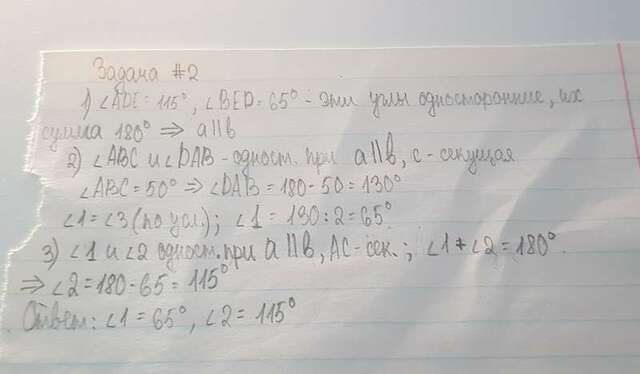 Задача #2
1) ∠ADE = 115°, ∠BED = 65° - эти углы односторонние, их
сумма 180° ⇒ a||b
2) ∠ABC и ∠DAB - одност. при a||b, c - секущая
∠ABC = 50° ⇒ ∠DAB = 180 - 50 = 130°
∠1 = ∠3 (по усл.); ∠1 = 130 : 2 = 65°
3) ∠1 и ∠2 одност. при a||b, AC - сек.; ∠1 + ∠2 = 180°.
⇒ ∠2 = 180 - 65 = 115°
Ответ: ∠1 = 65°, ∠2 = 115°